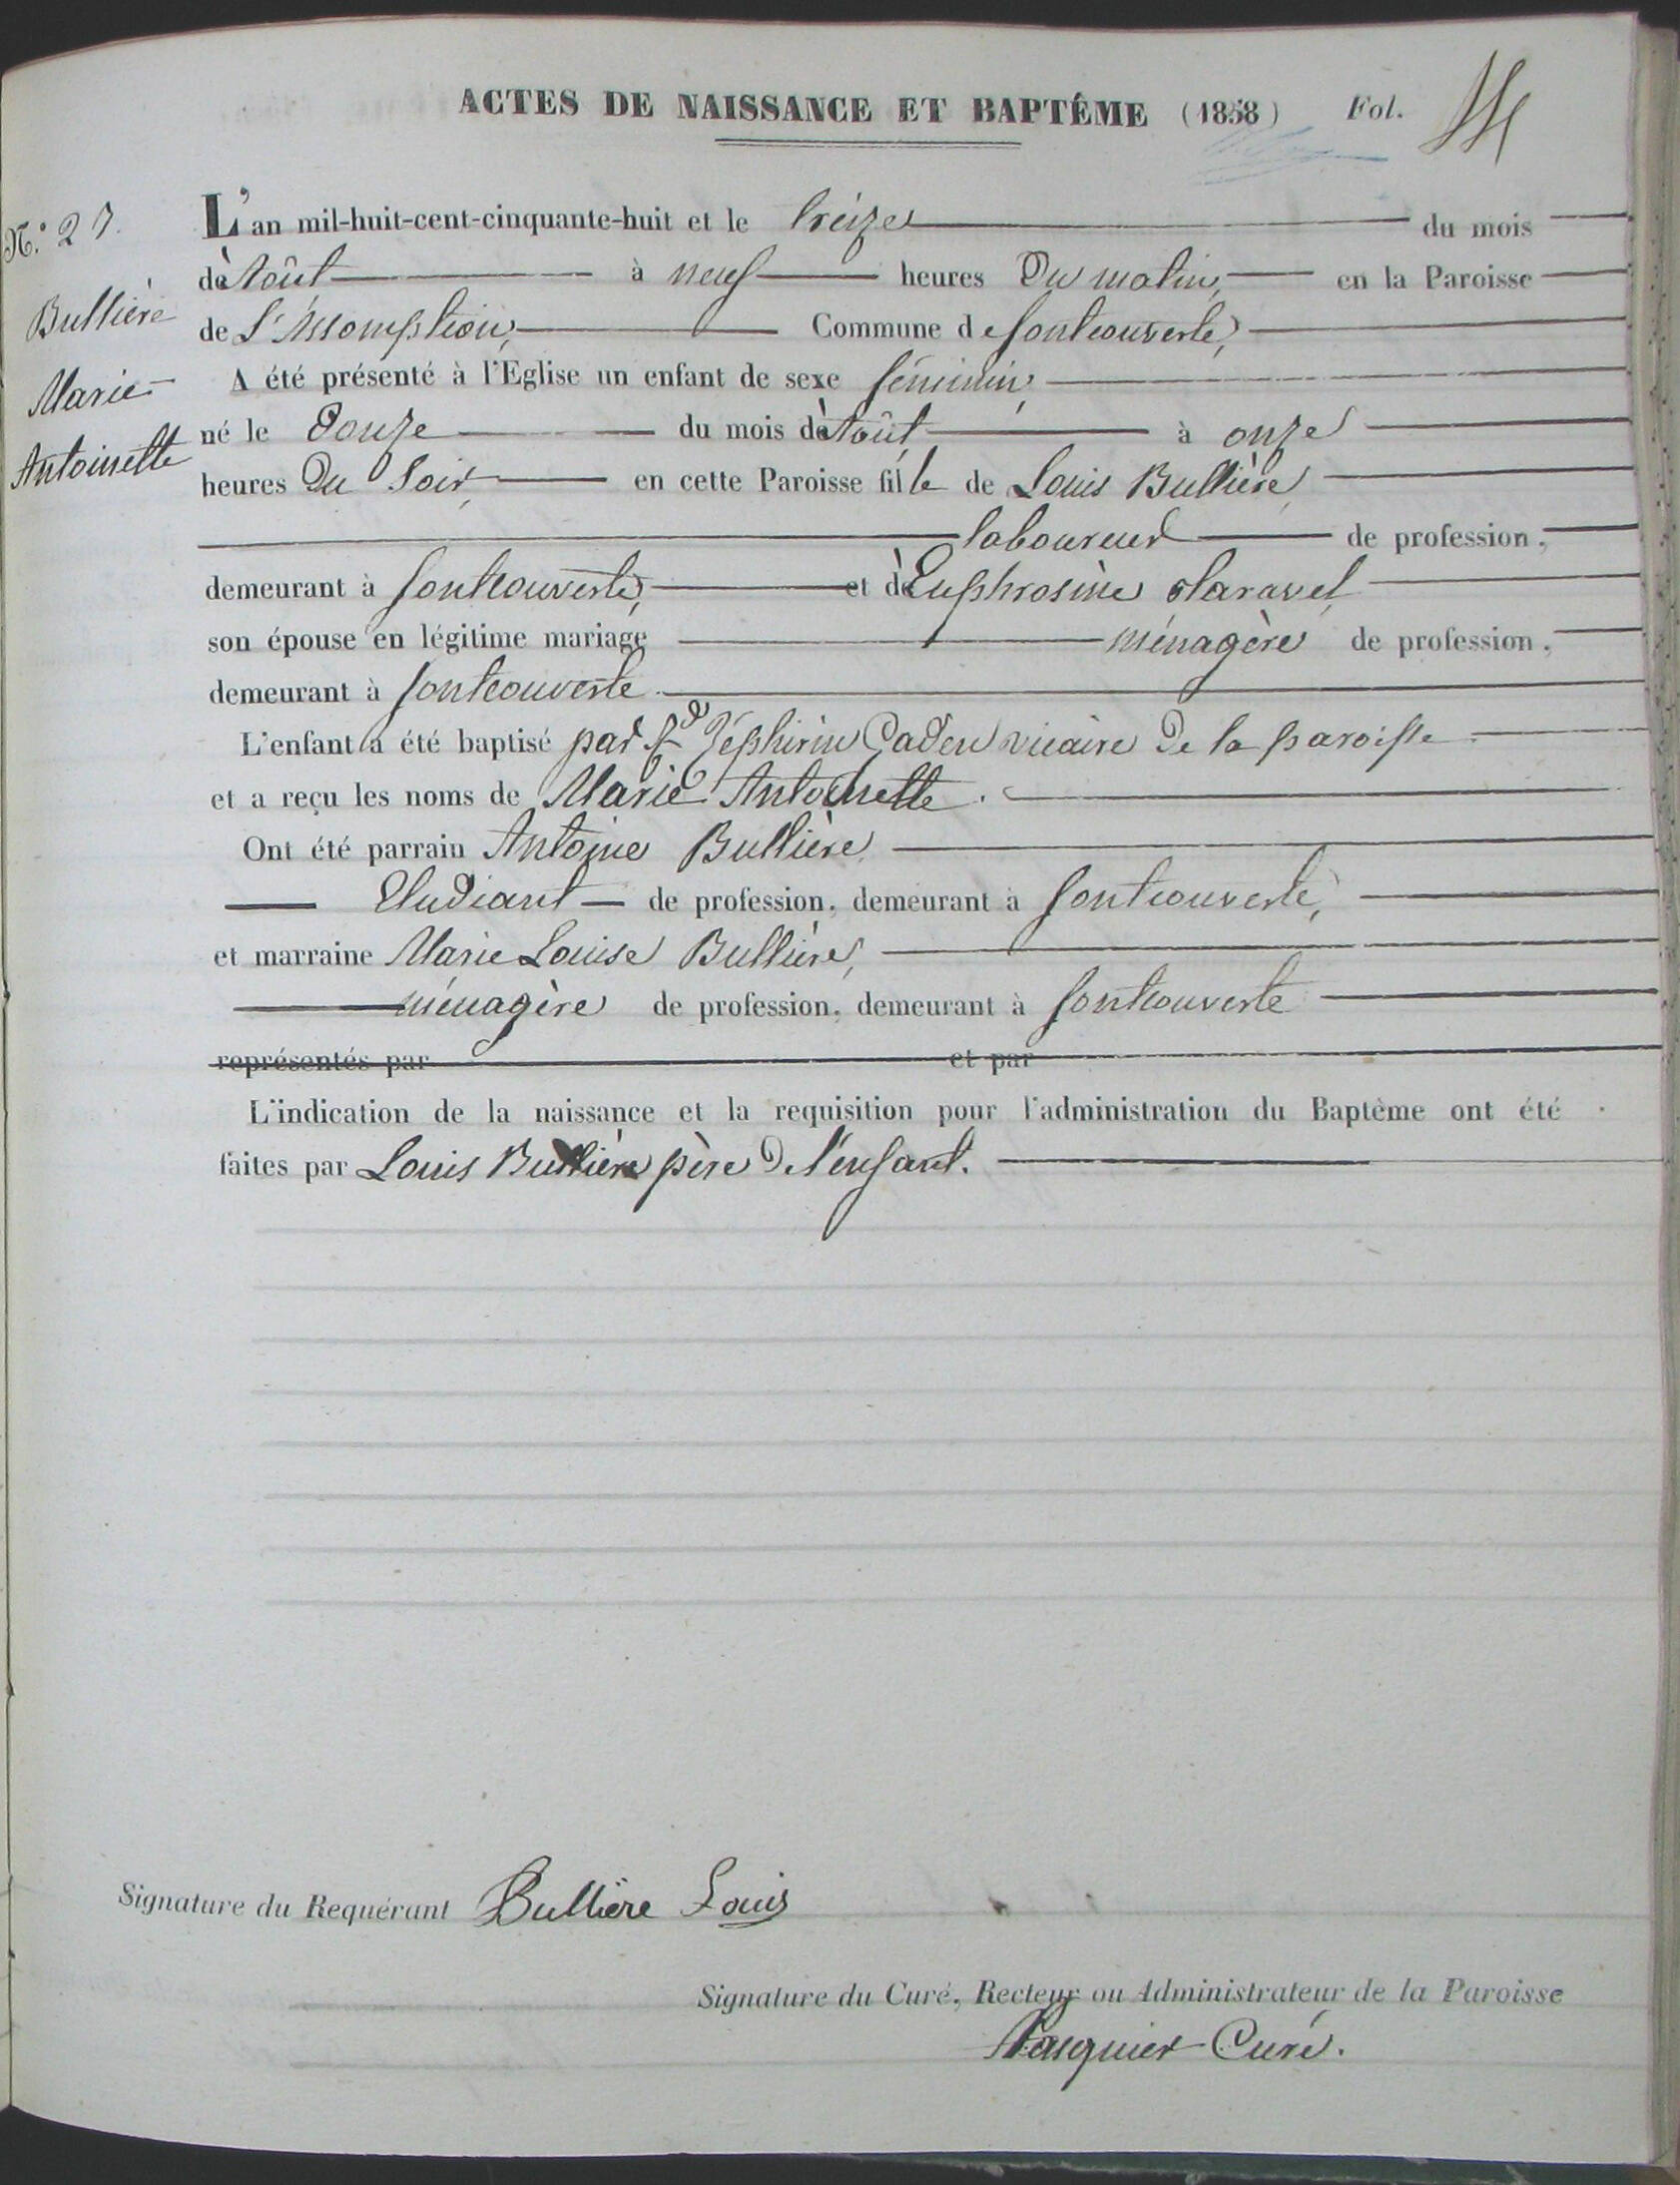 ACTES DE NAISSANCE ET BAPTÊME (1858) Fol. 14
N.° 27.
Bullière
Marie-
Antoinette
L'an mil-huit-cent-cinquante-huit et le treize du mois
d'Août à neuf heures du matin, en la Paroisse
de L'Assomption, Commune de fontcouverte,
A été présenté à l'Eglise un enfant de sexe féminin,
né le douze du mois d'Août à onze
heures du soir, en cette Paroisse fille de Louis Bullière,
laboureur de profession,
demeurant à fontcouverte, et d'Euphrosine
son épouse en légitime mariage ménagère de profession,
demeurant à fontcouverte.
L'enfant a été baptisé par Rd Zéphirin vicaire de la paroisse.
et a reçu les noms de Marie Antoinette.
Ont été parrain Antoine Bullière,
Etudiant de profession, demeurant à fontcouverte,
et marraine Marie Louise Bullière,
ménagère de profession, demeurant à fontcouverte
représentés par et par
L'indication de la naissance et la requisition pour l'administration du Baptème ont été
faites par Louis Bullière père de l'enfant.
Signature du Requérant Bullière Louis
Signature du Curé, Recteur ou Administrateur de la Paroisse
Pasquier Curé.